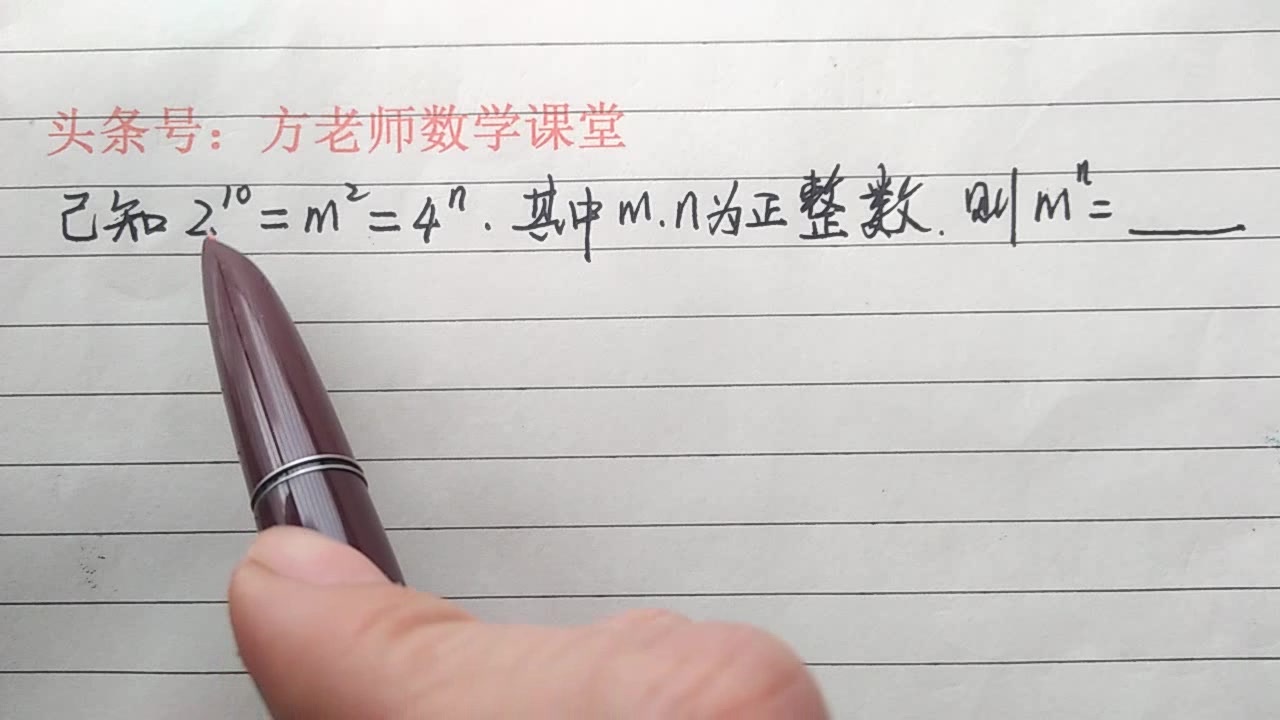 头条号：方老师数学课堂
已知 2¹⁰ = m² = 4ⁿ. 其中 m.n为正整数. 则 mⁿ = ____